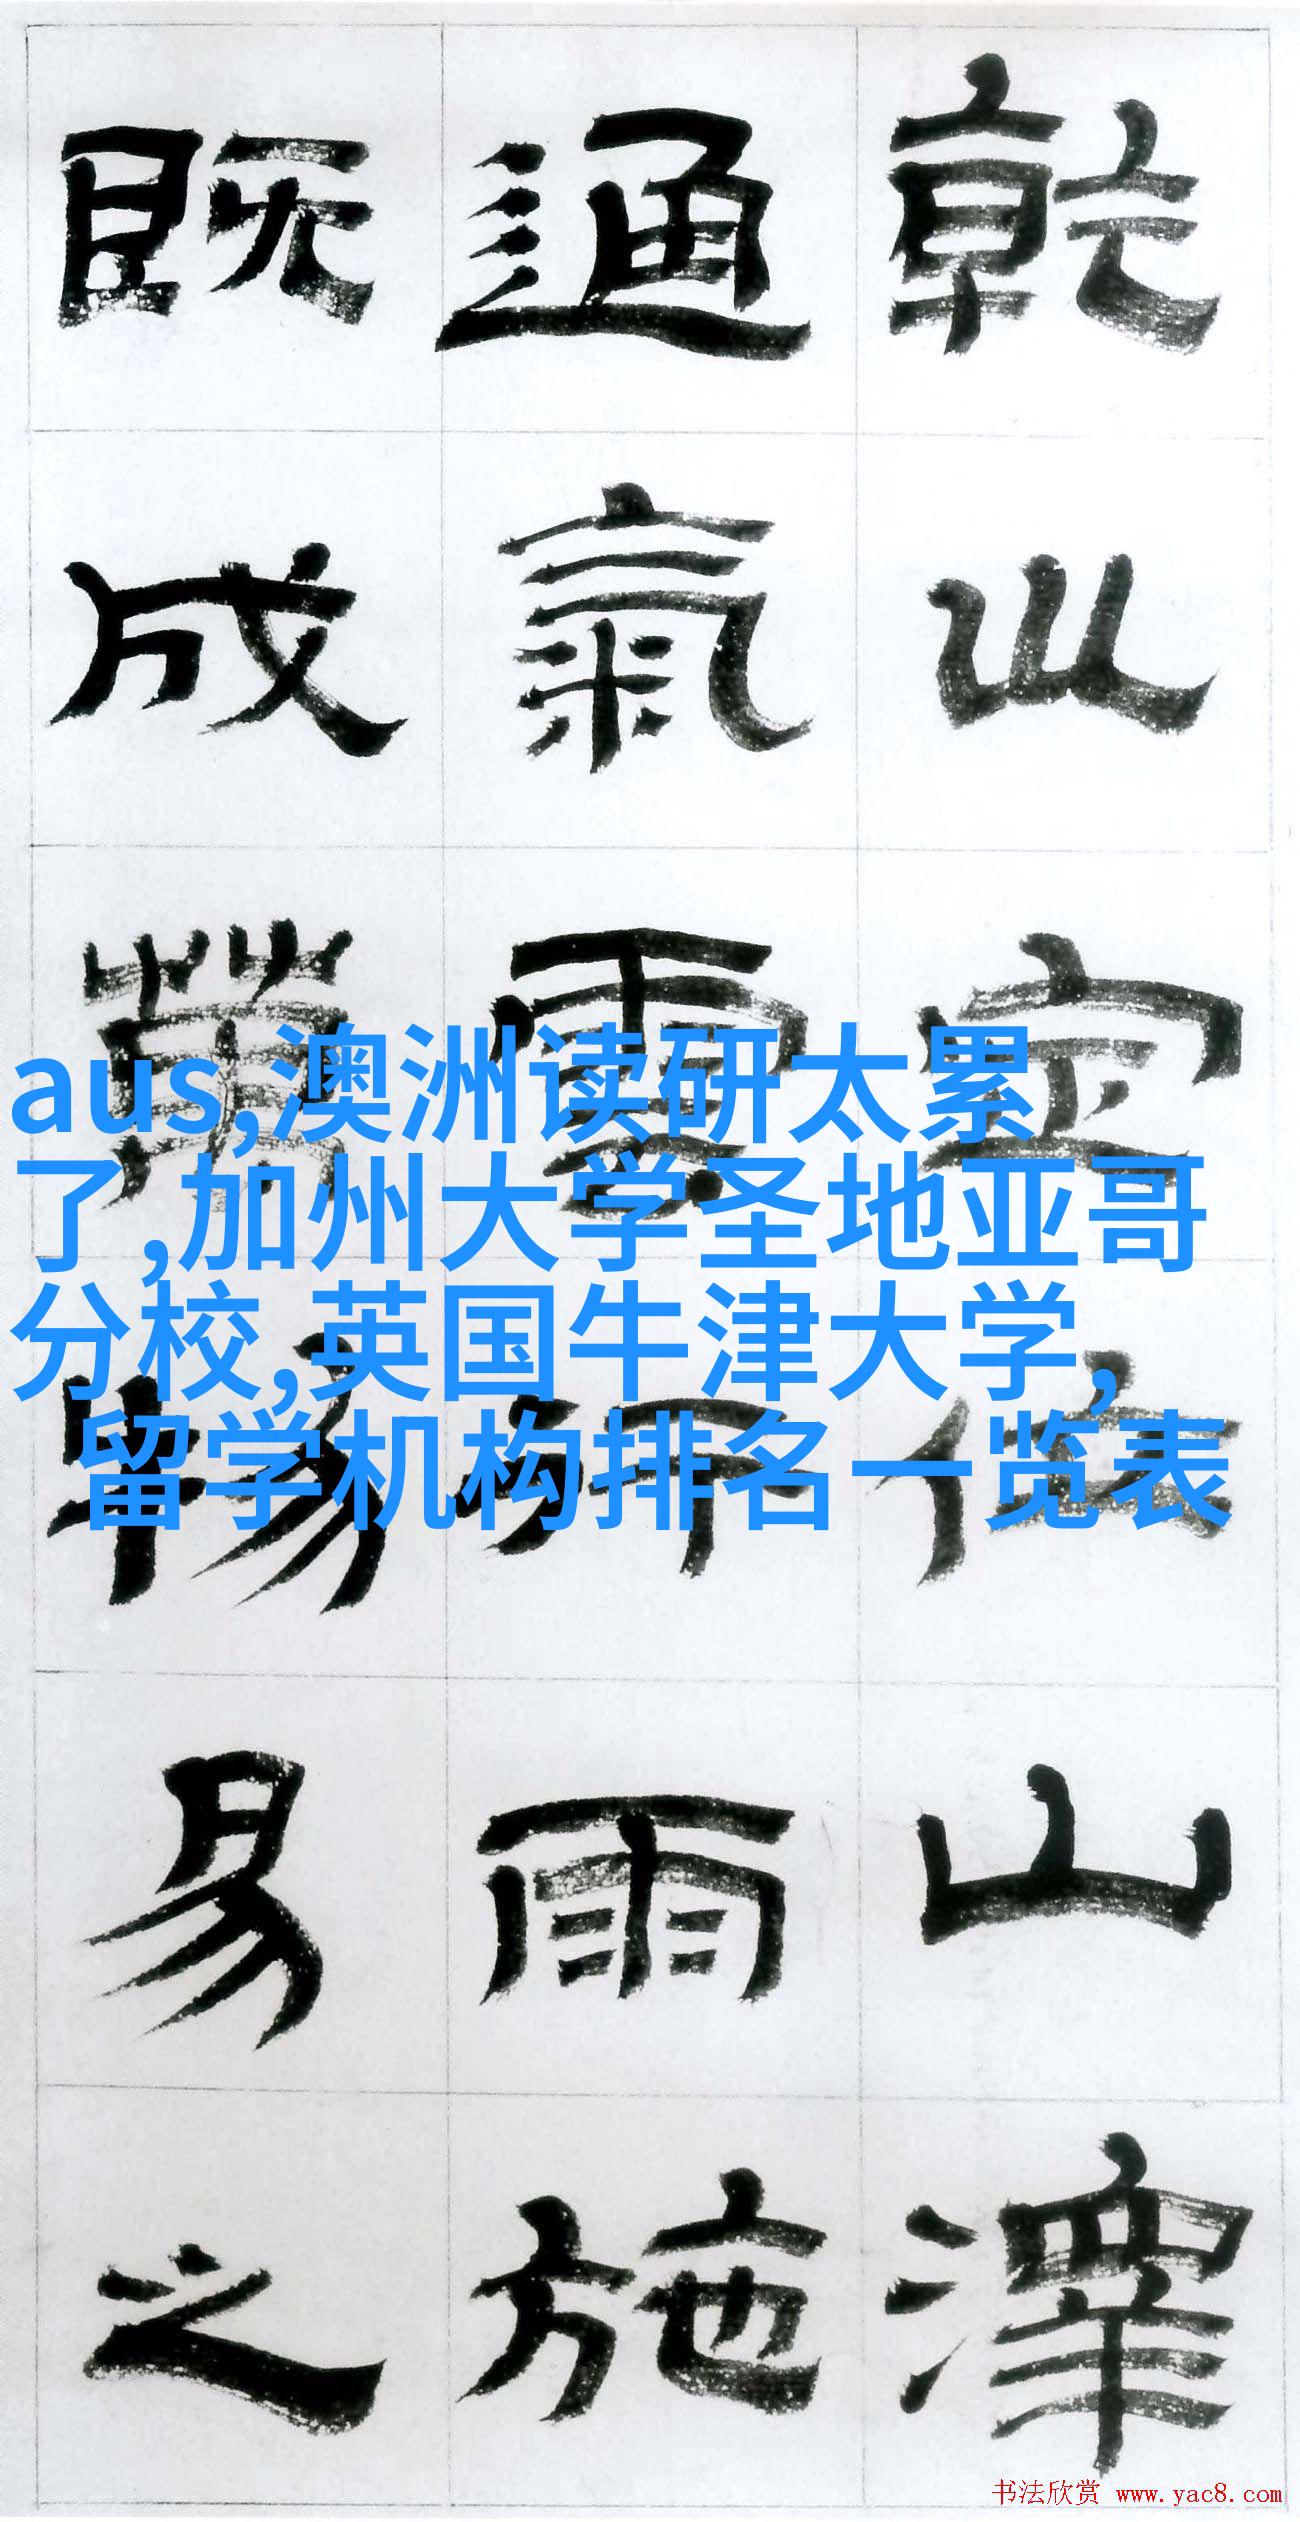 乾巛定位山澤
通氣雲行雨施
既成萬物易之
aus,澳洲读研太累
了,加州大学圣地亚哥
分校,英国牛津大学,
留学机构排名一览表
书法欣赏 www.yac8.com